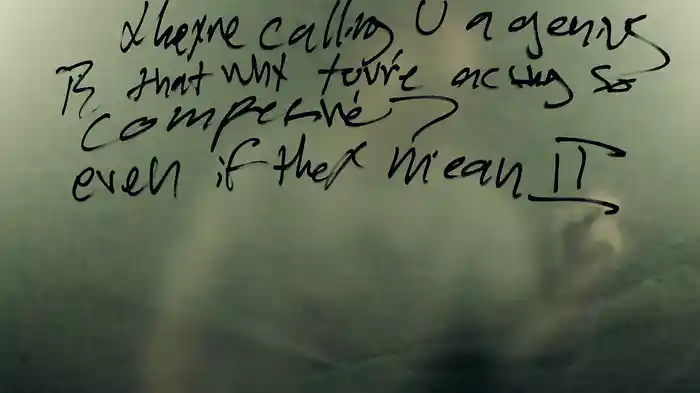 they're calling U a genius
Is that why you're acting so
compesive?
even if they mean IT